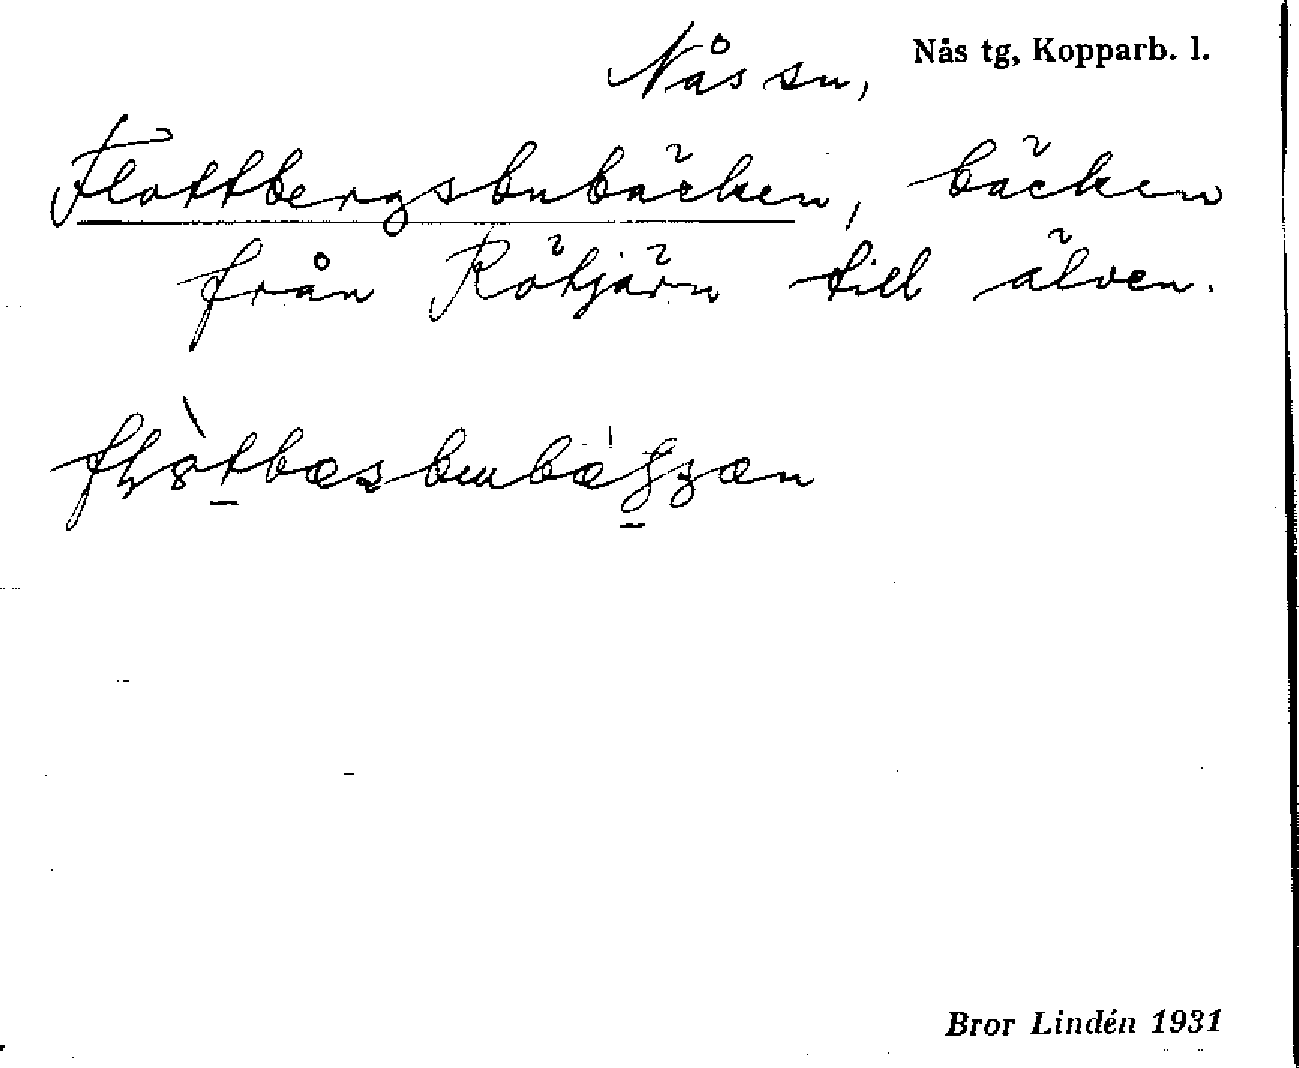 Nås sn, Nås tg, Kopparb. l.
Flottbergsbubäcken, bäcken
från Rötjärn till älven.
Bror Lindén 1931